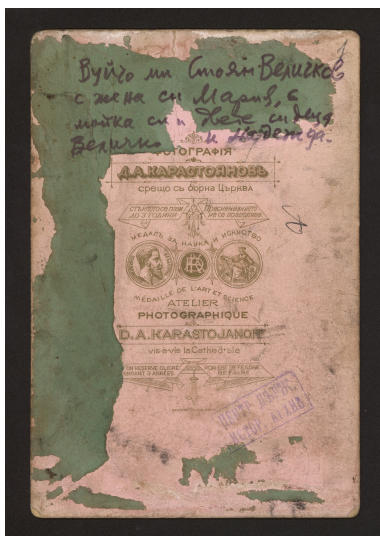 Вуйчо ми Стоян Величков
с жена си Мария, с
майка си и двете си деца
Величко и Надежда.
ФОТОГРАФІЯ
Д.А.КАРАСТОЯНОВЪ
срещо съ горна Църква
ДО 3 ГОДИНИ
МЕДАЛЪ ЗА НАУКА И ИСКУСТВО
MÉDAILLE DE L'ART ET SCIENCE
ATELIER
PHOTOGRAPHIQUE
D.A.KARASTOJANOFF
vis-a-vis la Cathédrale